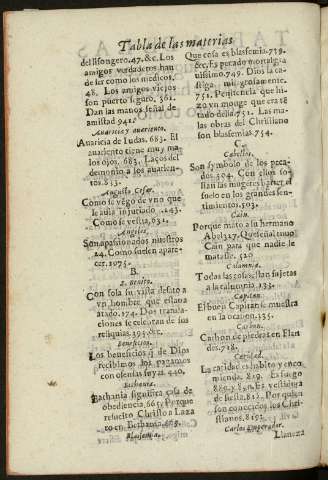 Tabla de las materias
del lisongero. 47. &c. Los
amigos verdaderos han
de ser como los medicos.
48. Los amigos viejos
son puerto seguro, 361.
Dan las manos señal de
amistad 941.
Auaricia y auariento.
Auaricia de Iudas. 683. El
auariento tiene muy ma
los ojos. 683. Laços del
demonio a los auarien-
tos. 853.
Augusto Cesar.
Como se vẽgo de vno que
le auia injuriado. 143.
Como se vestia, 631.
Angeles.
Son apassionados nuestros
24. Como suelen apare-
cer. 1075.
B.
S. Benito.
Con sola su vista desato a
vn hombre que estaua
atado. 174. Dos transla-
ciones se celebran de sus
reliquias. 195. &c.
Beneficios.
Los beneficios q̃ de Dios
recibimos los pagamos
con ofensas suyas. 440.
Bethania.
Bethania significa casa de
obediencia, 665. Porque
resucito Christo a Laza
ro en Bethania. 665.
Blasfemia.
Que cosa es blasfemia. 739.
&c. Es pecado mortal gra
uissimo. 749. Dios la ca-
stiga milagrosamente.
751. Penitencia que hi-
zo vn monge que era tẽ
tado della 751. Las ma-
las obras del Christiano
son blasfemias. 754.
C.
Cabellos.
Son symbolo de los peca-
dos. 504. Con ellos so-
lian las mugeres barrer el
suelo en los grandes sen-
timientos. 503.
Cain.
Porque mato a su hermano
Abel 327. Que señal tuuo
Cain para que nadie le
matasse. 520
Calumnia.
Todas las cosas estan sujetas
a la calumnia. 133.
Capitan.
El buen Capitan se muestra
en la ocasion. 335.
Carbon.
Carbon de piedra en Flan
des. 718.
Caridad.
La caridad es habito y enco
mienda. 889. Es fuego
889. y 890. Es vestidura
de fiesta. 813. Por quien
son conocidos los Chri-
stianos. 819.
Carlos Emperador.
Llaneza